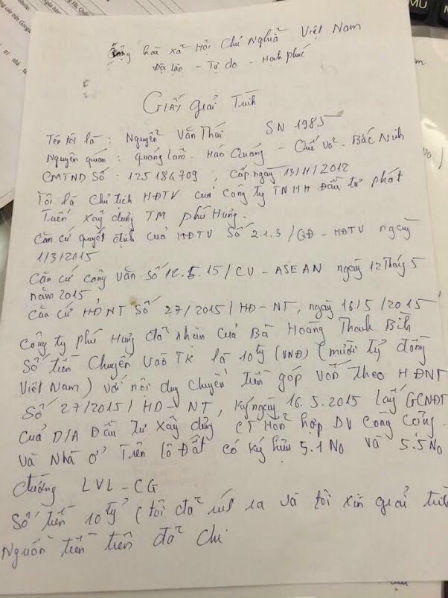 Cộng hoà xã Hội Chủ Nghĩa Việt Nam
Độc lập - Tự do - Hạnh phúc
Giấy giải Trình
Tên tôi là: Nguyễn Văn Thái SN 1985
Nguyên quán: Quảng Lãm. Hán Quảng - Quế Võ. Bắc Ninh
CMTND Số: 125186709, cấp ngày 13/11/2012
Tôi là Chủ tịch HĐTV của Công ty TNHH Đầu tư phát
Triển xây dựng TM Phú Hưng.
Căn cứ quyết định của HĐTV Số 2.1.3/QĐ-HĐTV ngày
1/3/2015
Căn cứ công văn Số 12.5.15/CV-ASEAN ngày 12 Tháng 5
năm 2015
Căn cứ HĐNT Số 27/2015/HĐ-NT, ngày 16/5/2015
Công ty phú Hưng đã nhận của Bà Hoàng Thanh Bích
Số tiền Chuyển vào TK là 10 tỷ (VNĐ) (mười tỷ đồng
Việt Nam) với nội dung chuyển tiền góp vốn theo HĐNT
Số 27/2015/HĐ-NT, ký ngày 16.5.2015 lấy GCNĐT
của D/A Đầu tư xây dựng CT Hỗn hợp DV Công Cộng.
và Nhà ở Trên lô Đất có ký hiệu 5.1 No và 5.5 No
đường LVL-CG
Số tiền 10 tỷ (tôi đã rút ra và tôi xin giải trình
Nguồn tiền tiền đã chi